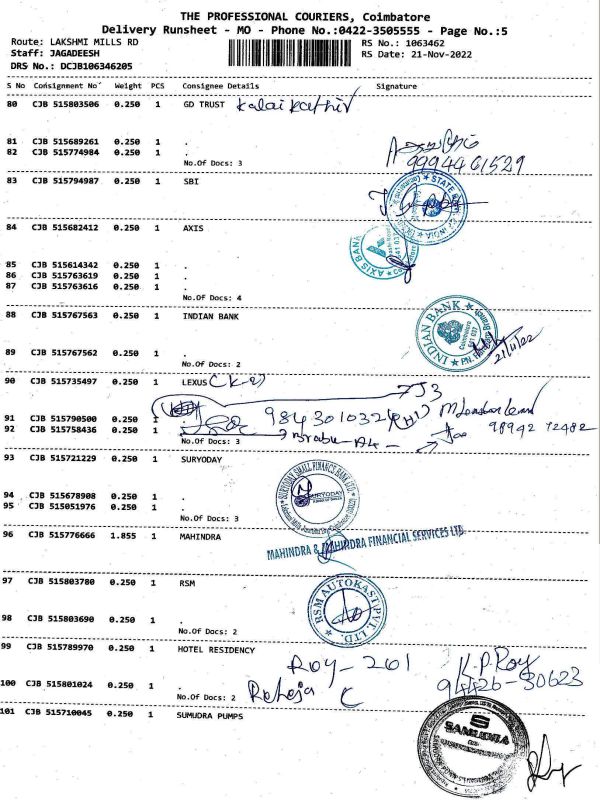 THE PROFESSIONAL COURIERS, Coimbatore
Delivery Runsheet - MO - Phone No.:0422-3505555 - Page No.:5
Route: LAKSHMI MILLS RD
RS No.: 1063462
Staff: JAGADEESH
RS Date: 21-Nov-2022
DRS No.: DCJB106346205
S No Consignment No' Weight PCS Consignee Details Signature
80 CJB 515803506 0.250 1 GD TRUST Kalai Kathir
81 CJB 515689261 0.250 1 .
82 CJB 515774984 0.250 1 .
9994461529
No.Of Docs: 3
83 CJB 515794987 0.250 1 SBI
84 CJB 515682412 0.250 1 AXIS
AXIS BANK
85 CJB 515614342 0.250 1 .
86 CJB 515763619 0.250 1 .
87 CJB 515763616 0.250 1 .
No.Of Docs: 4
88 CJB 515767563 0.250 1 INDIAN BANK
INDIAN BANK
21/11/22
89 CJB 515767562 0.250 1 .
No.Of Docs: 2
90 CJB 515735497 0.250 1 LEXUS
753
91 CJB 515790500 0.250 1
984301032
92 CJB 515758436 0.250 1
98942 72482
No.Of Docs: 3
93 CJB 515721229 0.250 1 SURYODAY
SURYODAY SMALL FINANCE BANK LTD
SURYODAY
94 CJB 515678908 0.250 1 .
95 CJB 515051976 0.250 1 .
No.Of Docs: 3
96 CJB 515776666 1.855 1 MAHINDRA
MAHINDRA & MAHINDRA FINANCIAL SERVICES LTD.
97 CJB 515803780 0.250 1 RSM
RSM AUTOKAST PVT. LTD.
98 CJB 515803690 0.250 1 .
No.Of Docs: 2
99 CJB 515789970 0.250 1 HOTEL RESIDENCY
Roy-261 K.P.Roy
94426-30623
100 CJB 515801024 0.250 1 .
No.Of Docs: 2 Raheja C
101 CJB 515710045 0.250 1 SUMUDRA PUMPS
SAMUDRA